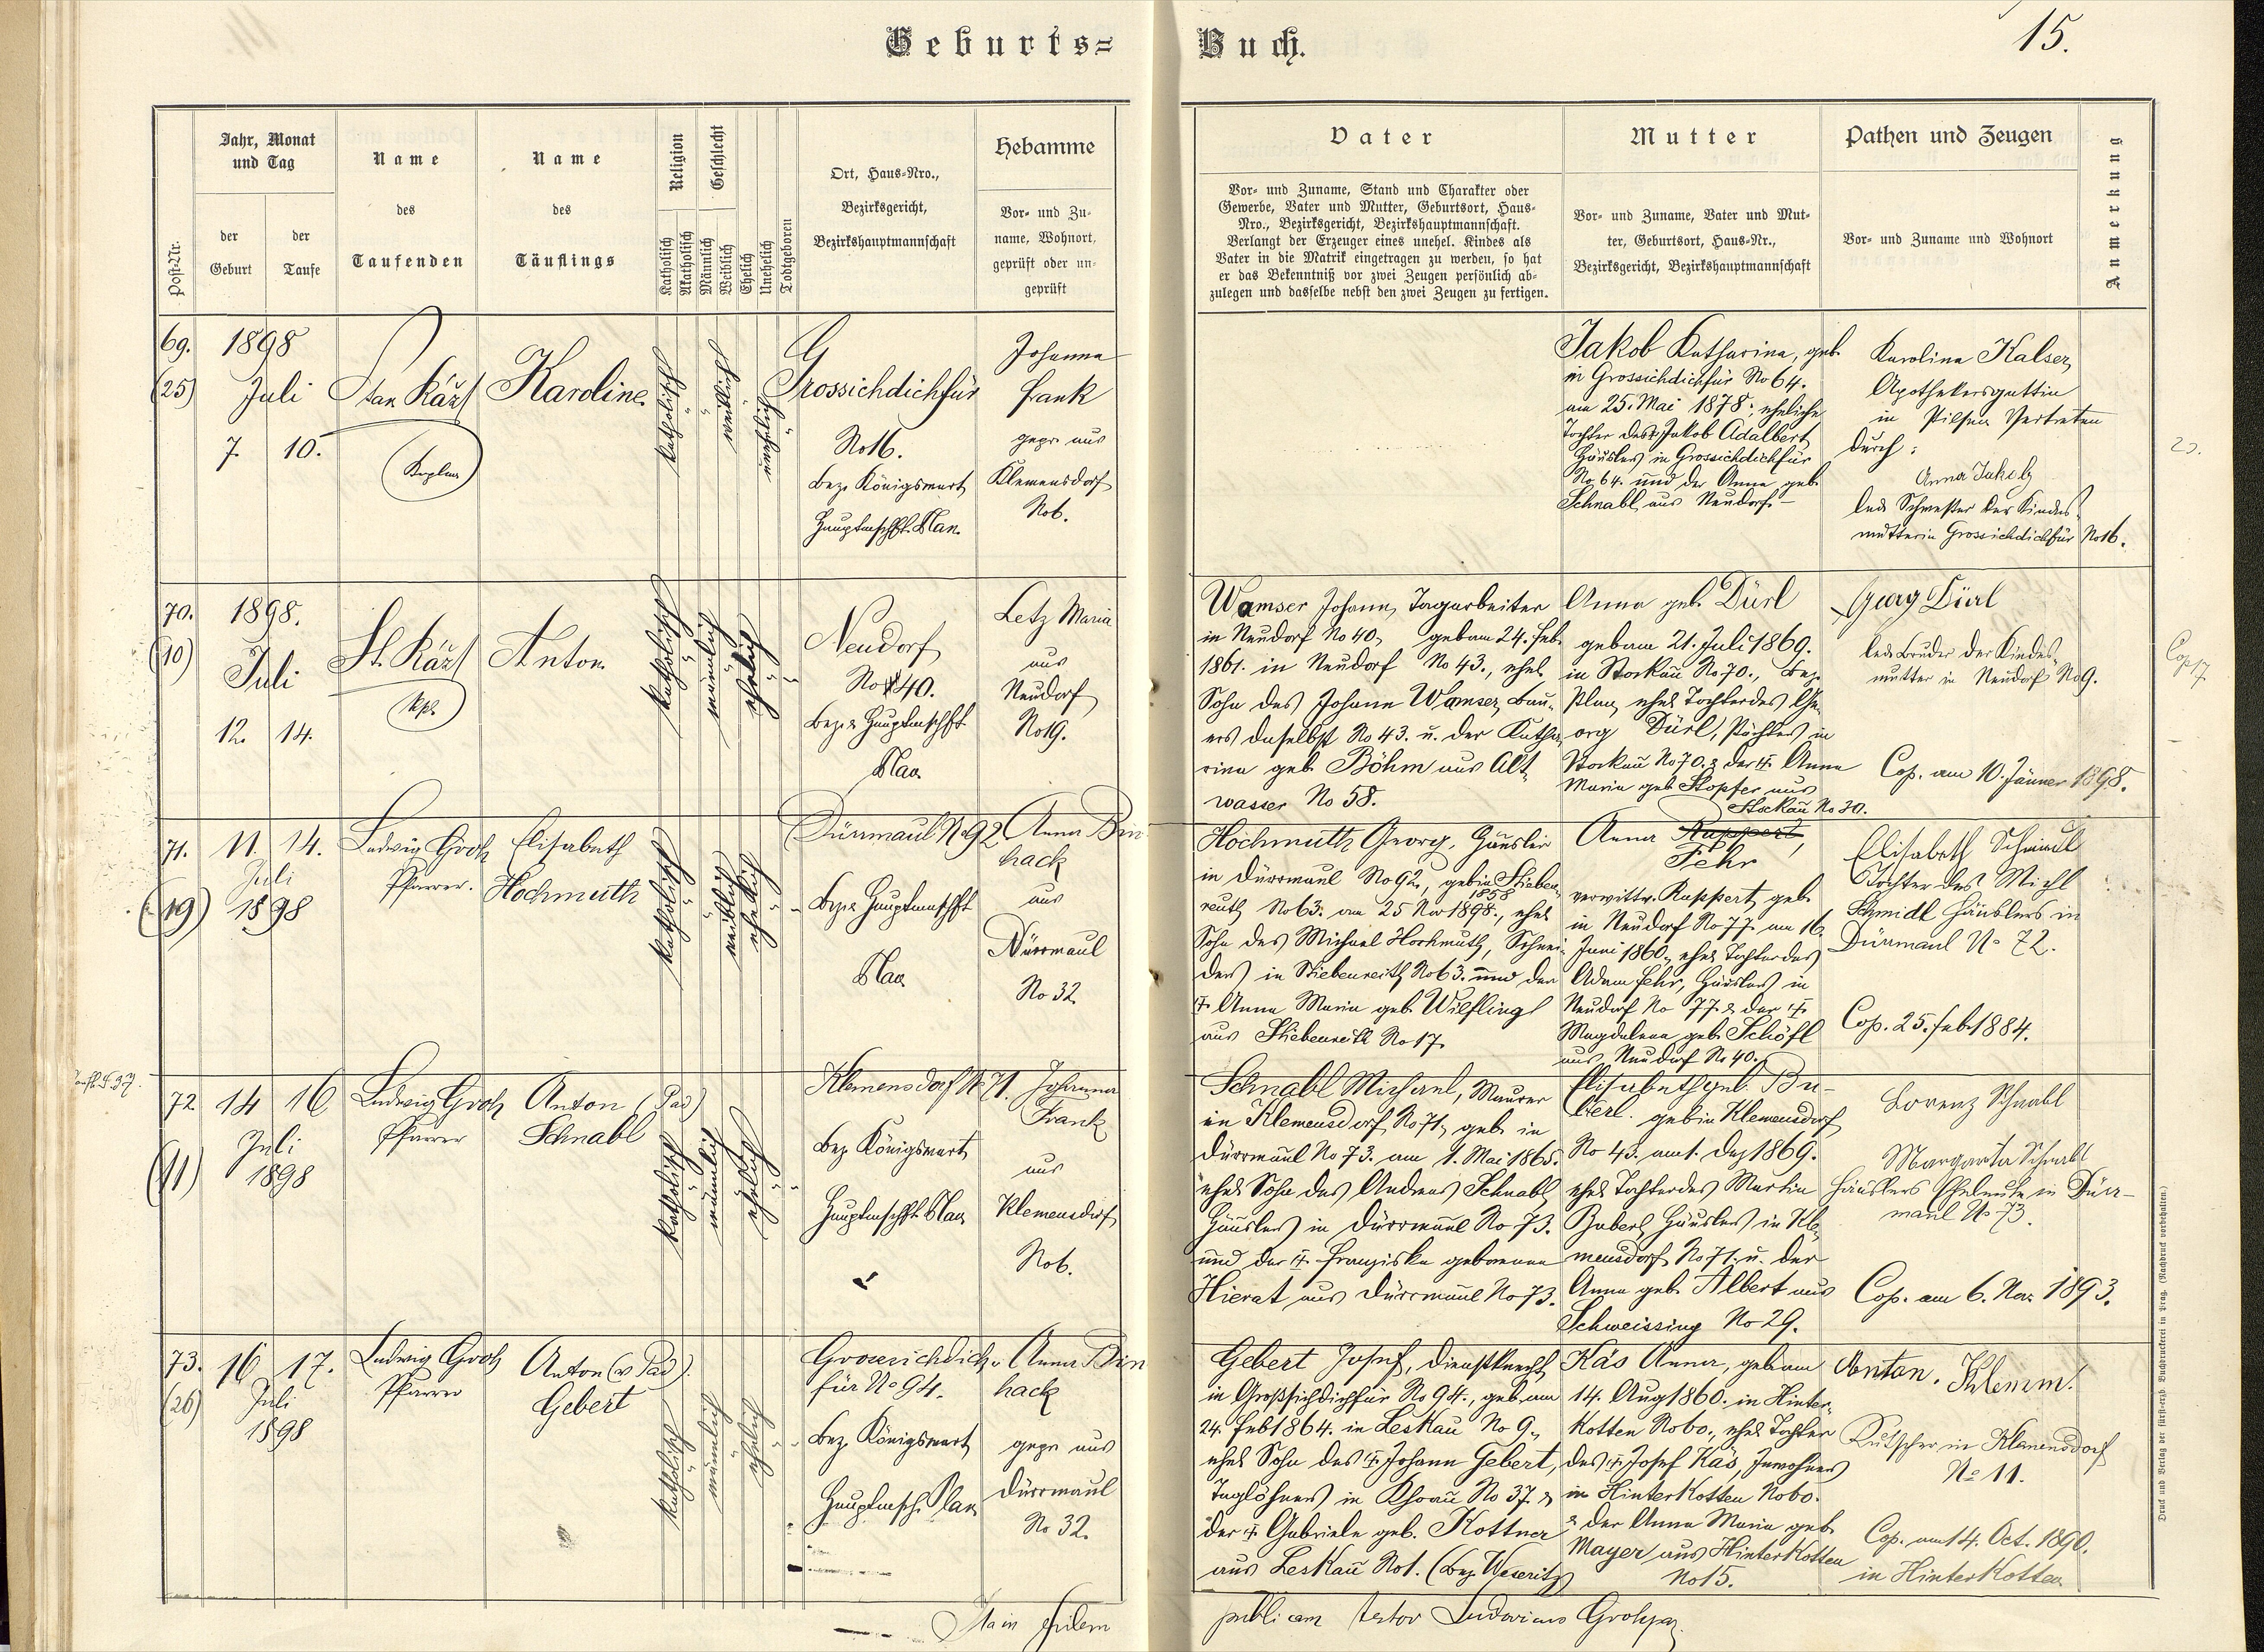 Geburts=
Buch.
15.
Post-Nr.
Jahr, Monat
und Tag
der
Geburt
der
Taufe
Name
des
Taufenden
Name
des
Täuflings
Religion
Katholisch
Akatholisch
Geschlecht
Männlich
Weiblich
Ehelich
Unehelich
Todtgeboren
Ort, Haus-Nro.,
Bezirksgericht,
Bezirkshauptmannschaft
Hebamme
Vor- und Zu-
name, Wohnort,
geprüft oder un-
geprüft
Vater
Vor- und Zuname, Stand und Charakter oder
Gewerbe, Vater und Mutter, Geburtsort, Haus-
Nro., Bezirksgericht, Bezirkshauptmannschaft.
Verlangt der Erzeuger eines unehel. Kindes als
Vater in die Matrik eingetragen zu werden, so hat
er das Bekenntniß vor zwei Zeugen persönlich ab-
zulegen und dasselbe nebst den zwei Zeugen zu fertigen.
Mutter
Vor- und Zuname, Vater und Mut-
ter, Geburtsort, Haus-Nr.,
Bezirksgericht, Bezirkshauptmannschaft
Pathen und Zeugen
Vor- und Zuname und Wohnort
Anmerkung
69.
(25)
1898
Juli
7. 10.
Karoline
katholisch
weiblich
unehelich
Grossichdichfür
No 16.
Bez. Königswart
Hauptmschft. Plan.
Johanna
Frank
gepr. aus
Klemensdorf
No 6.
Jakob Katharina, geb.
in Grossichdichfür No 64.
am 25. Mai 1878; eheliche
Tochter des Jakob Adalbert
Häuslers in Grossichdichfür
No 64. und der Anna geb.
Schnabl aus Neudorf.
Karolina Kalser,
Apothekersgattin
in Pilsen Vertreten
durch:
Anna Jakob
led. Schwester der Kindes-
mutter in Grossichdichfür No 16.
70.
(10)
1898.
Juli
12. 14.
Anton
katholisch
männlich
ehelich
Neudorf
No 40.
Bez. & Hauptmschft
Plan
Letz Maria
aus
Neudorf
No 19.
Wamser Johann, Tagarbeiter
in Neudorf No 40, geb. am 24. Feb.
1861. in Neudorf No 43., ehel.
Sohn des Johann Wamser, Bau-
ers daselbst No 43. u. der Katha-
rina geb. Böhm aus Alt-
wasser No 58.
Anna geb. Dürl
geb. am 21. Juli 1869.
in Stockau No 70., Bez.
Plan, ehel. Tochter des Ge-
org Dürl, Pächters in
Stockau No 70. & der Anna
Maria geb. Stopfer aus
Stockau No 30.
Georg Dürl
led. Bruder der Kindes-
mutter in Neudorf No 9.
Cop. am 10. Jänner 1898.
71.
(19)
11. 14.
Juli
1898
Ludwig Groh
Pfarrer.
Elisabeth
Hochmuth
katholisch
weiblich
ehelich
Dürrmaul No 92
Bez. & Hauptmschft
Plan
Anna Bin
hack
aus
Dürrmaul
No 32
Hochmuth Georg, Häusler
in Dürrmaul No 92., geb. in Stieben-
reuth No 63. am 25 Nov 1898., ehel.
1858
Sohn des Michael Hochmuth, Schnei-
ders in Stiebenreith No 63. und der
Anna Maria geb. Wilflingl
aus Stiebenreith No 17.
Anna Ruppert,
Fehr
verwittw. Ruppert, geb.
in Neudorf No 77. am 16.
Juni 1860, ehel. Tochter des
Adam Fehr, Häuslers in
Neudorf No 77. & der
Magdalena geb. Schöfl
aus Neudorf No 40.
Elisabeth Schmidl
Tochter des Michl
Schmidl Häuslers in
Dürrmaul No 72.
Cop. 25. Feb. 1884.
72
(11)
14 16
Juli
1898
Ludwig Groh
Pfarrer
Anton (Pad)
Schnabl
katholisch
männlich
ehelich
Klemensdorf No 71.
Bez. Königswart
Hauptmschft. Plan
Johanna
Frank
aus
Klemensdorf
No 6.
Schnabl Michael, Maurer
in Klemensdorf No 71, geb. in
Dürrmaul No 73. am 1. Mai 1865.
ehel. Sohn des Andreas Schnabl
Häuslers in Dürrmaul No 73.
und der Franziska geborenen
Hierat aus Dürrmaul No 73.
Elisabeth geb. Bu-
berl. geb. in Klemensdorf
No 43. am 1. Dez 1869.
ehel. Tochter des Martin
Buberl, Häuslers in Kle-
mensdorf No 71. u. der
Anna geb. Albert aus
Schweissing No 29.
Lorenz Schnabl
Margareta Schnabl
Häuslers Eheleute in Dürr-
maul No 73.
Cop. am 6. Nov. 1893.
73.
(26)
16 17.
Juli
1898
Ludwig Groh
Pfarrer
Anton (v Pad)
Gebert
katholisch
männlich
ehelich
Grossichdich-
für No 94.
Bez. Königswart
Hauptmsch. Plan
Anna Bin
hack
gepr. aus
Dürrmaul
No 32.
Gebert Josef, Dienstknecht
in Großsichdichfür No 94., geb. am
24. Feb 1864. in Leskau No 9.,
ehel. Sohn des Johann Gebert,
Taglöhners in No 37. &
der Gabriele geb. Kottner
aus Leskau No 1. (Bez. Weseritz)
Käs Anna, geb. am
14. Aug 1860. in Hinter-
kotten No 60., ehel. Tochter
des Josef Käs, Inwohners
in Hinterkotten No 60.
& der Anna Maria geb.
Mayer aus Hinterkotten
No 15.
Anton Klemm.
Kutscher in Klemensdorf
No 11.
Cop. am 14. Oct. 1890.
in Hinterkotten
Sta in fidem
publicam testor Ludovicus Groh
Druck und Verlag der fürst-erzb. Buchdruckerei in Prag. (Nachdruck vorbehalten.)